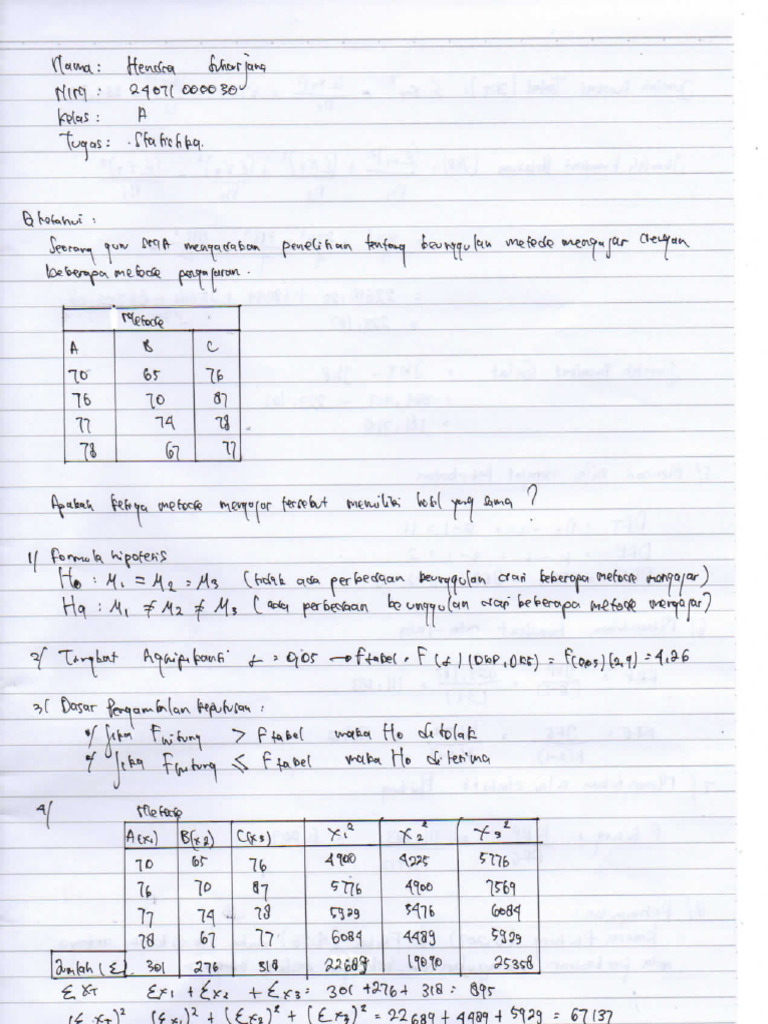 Nama : Hendra Suharjana
NIM : 24071000030
Kelas : A
Tugas : Statistika.
Diketahui :
Seorang guru SMA mengadakan penelitian tentang keunggulan metode mengajar dengan
beberapa metode pengajaran.
Metode
A B C
70 65 76
76 70 87
77 74 78
78 67 77
Apakah ketiga metode mengajar tersebut memiliki hasil yang sama ?
1/ Formula hipotesis
Ho : μ1 = μ2 = μ3 (tidak ada perbedaan keunggulan dari beberapa metode mengajar)
Ha : μ1 ≠ μ2 ≠ μ3 (ada perbedaan keunggulan dari beberapa metode mengajar)
2/ Tingkat α = 0,05 → F tabel = F (α) (DKP, DKS) = F(0,05) (2,9) = 4,26
3/ Dasar Pengambilan keputusan :
Jika F hitung > F tabel maka Ho ditolak
Jika F hitung ≤ F tabel maka Ho diterima
4/ Metode
A(x1) B(x2) C(x3) X1² X2² X3²
70 65 76 4900 4225 5776
76 70 87 5776 4900 7569
77 74 78 5929 5476 6084
78 67 77 6084 4489 5929
Jumlah (Σ) 301 276 318 22689 19090 25358
ΣXT Σx1 + Σx2 + Σx3 = 301 + 276 + 318 = 895
(ΣXT)² (Σx1)² + (Σx2)² + (Σx3)² = 22689 + 4489 + 5929 = 67137